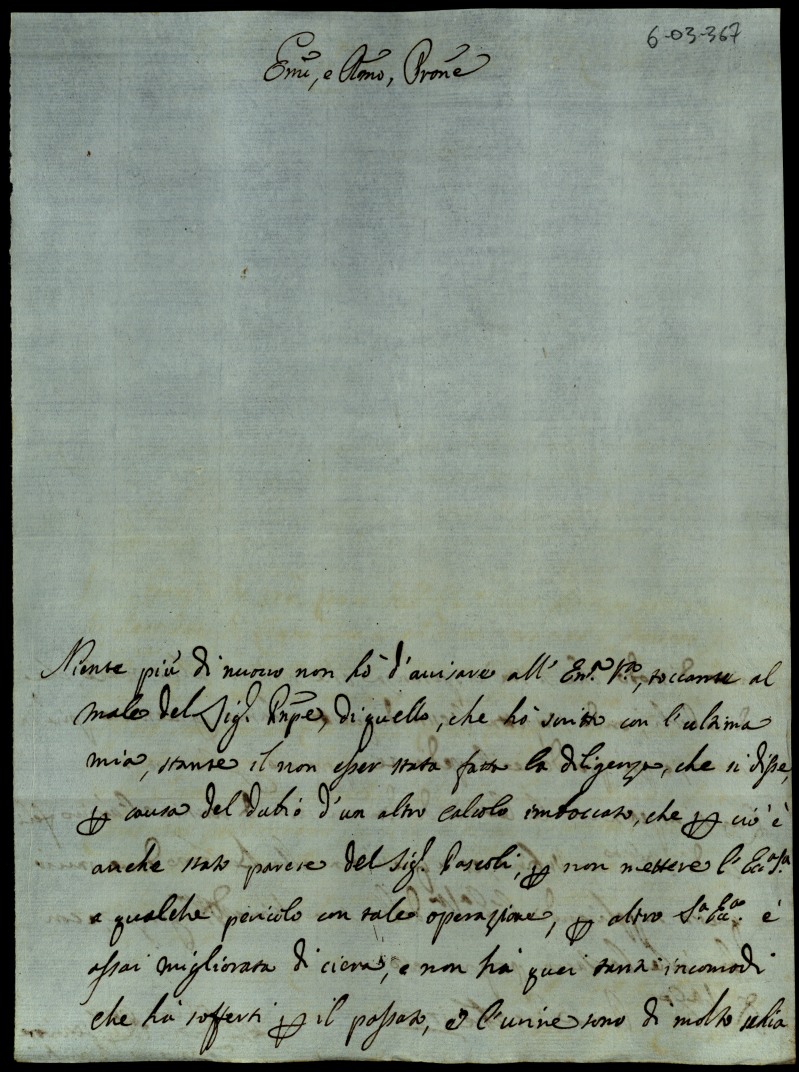 6-03-367
Emô, e Rmô, Prone
Niente più di nuovo non hò d'avisare all' Em.ª V.ra, toccante al
male del Sig.r Pnpe, di quello, che hò scritto con l'ultima
mia, stante il non esser stata fatta la diligenza, che si disse,
ꝑ causa del dubio d'un altro calcolo imboccato, che ꝑ ciò è
anche stato parere del Sig.r Pascoli, ꝑ non mettere l'Ecc.ª S.ª
a qualche pericolo con tale operazione, ꝑ altro S.ª Ecc.ª è
assai migliorata di ciera, e non hà quei tanti incomodi
che hà sofferti ꝑ il passato, e l'urine sono di molto schia